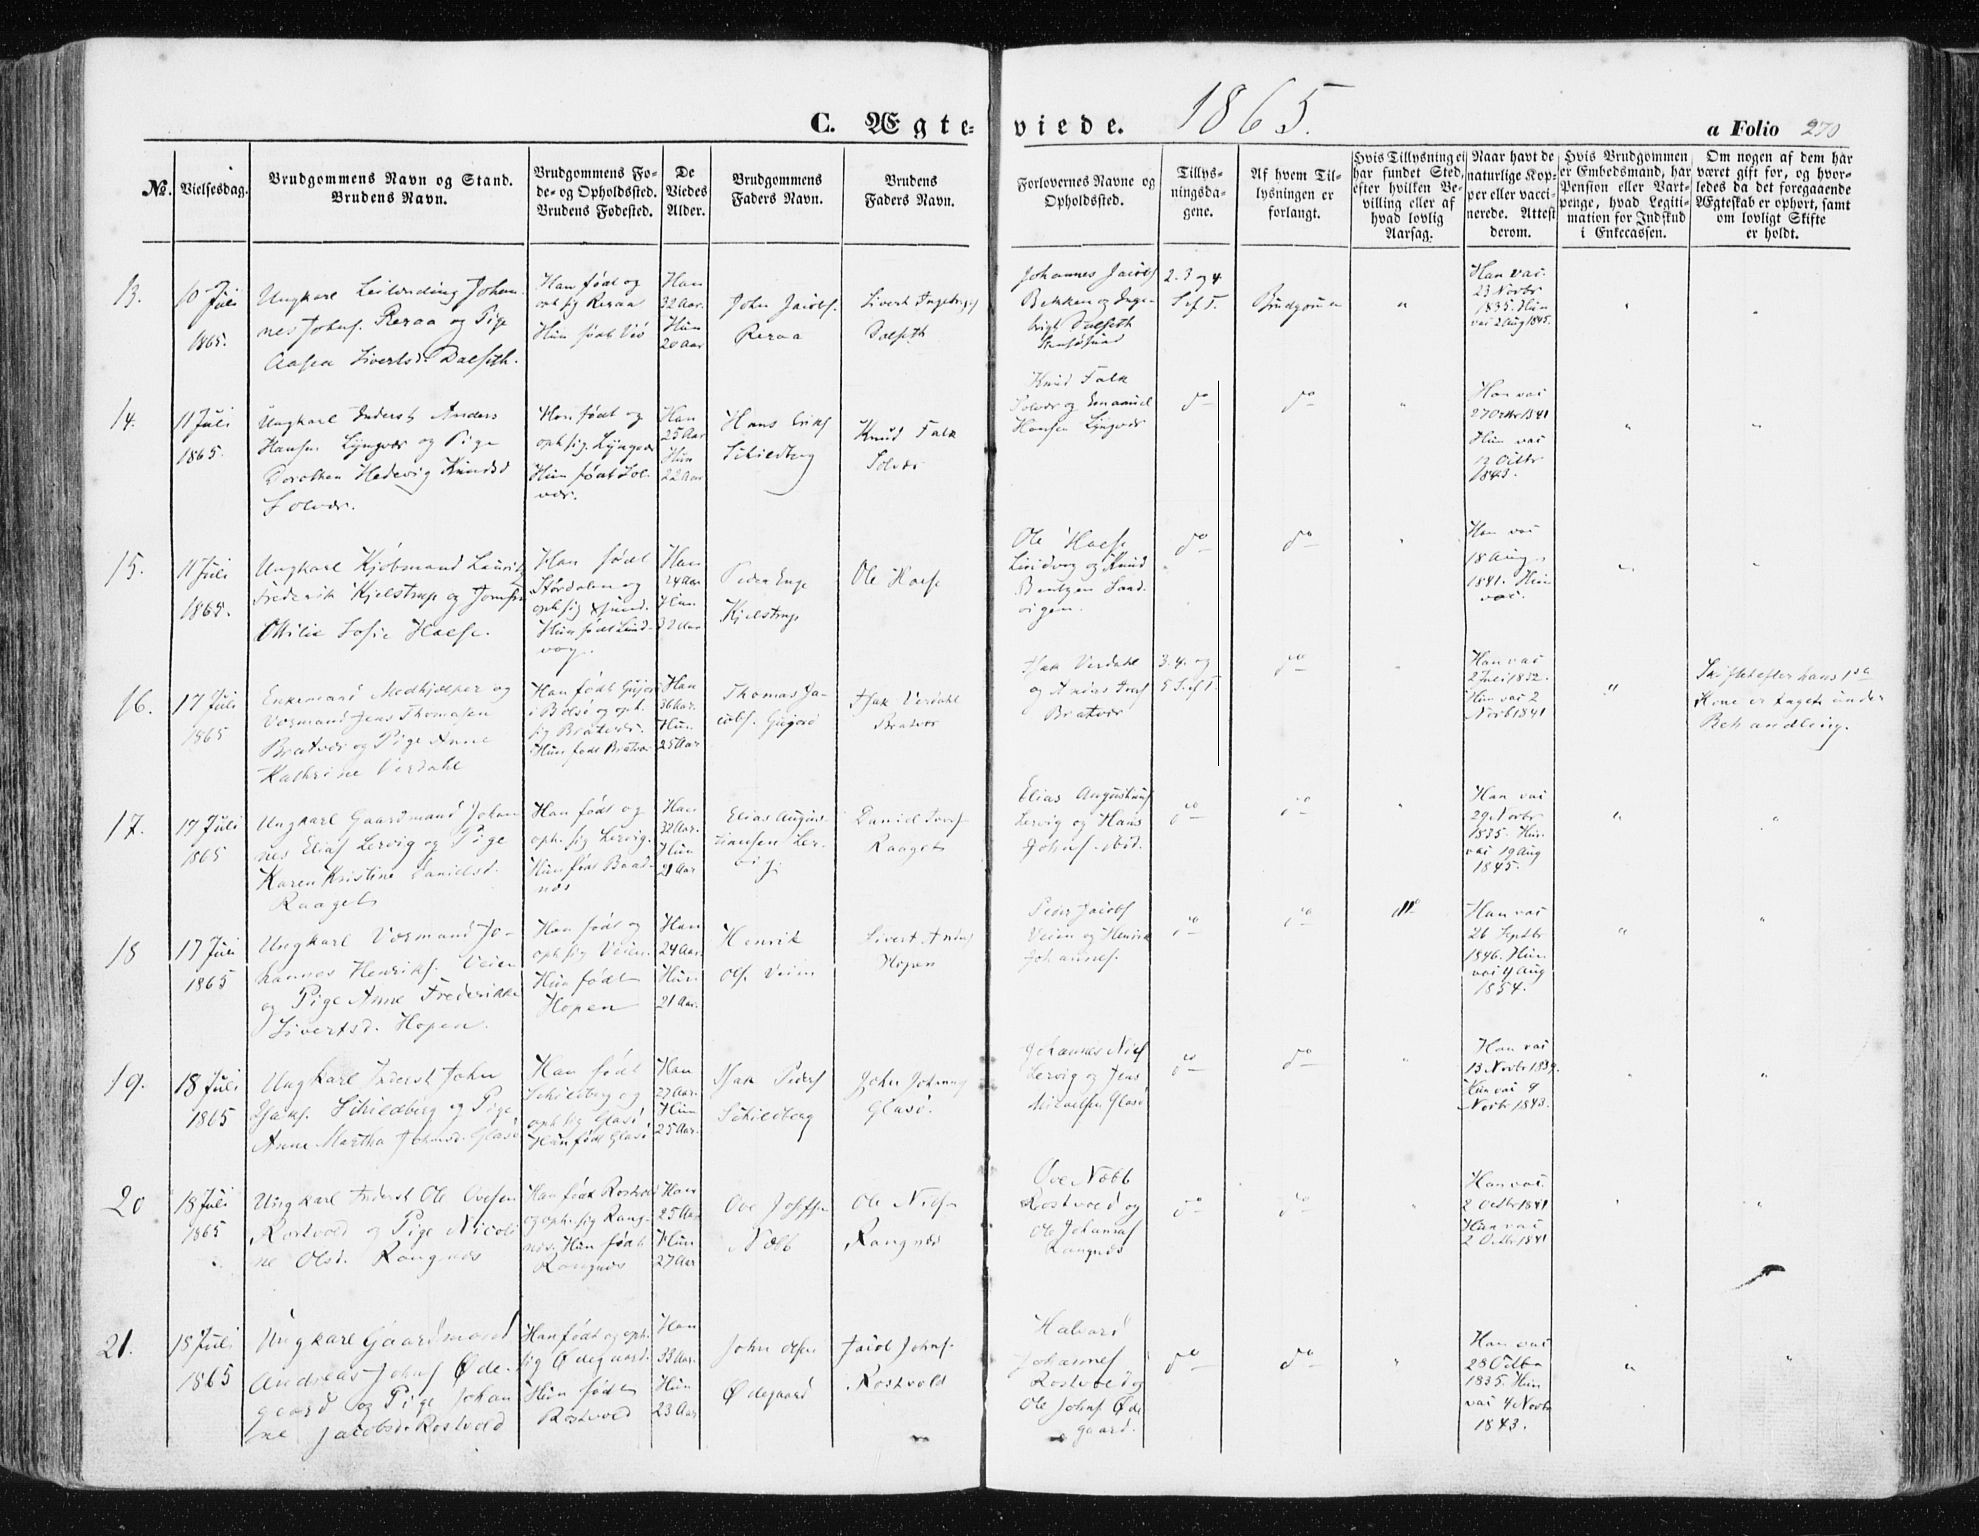 C. Ægteviede. 1865.
a Folio 270
No.
Vielsesdag.
Brudgommens Navn og Stand.
Brudens Navn.
Brudgommens Fø-
de- og Opholdssted.
Brudens Fødested.
De
Viedes
Alder.
Brudgommens
Faders Navn.
Brudens
Faders Navn.
Forlovernes Navne og
Opholdssted.
Tillys-
ningsda-
gene.
Af hvem Til-
lysningen er
forlangt.
Hvis Tillysning ei
har fundet Sted,
efter hvilken Be-
villing eller af
hvad lovlig
Aarsag.
Naar havt de
naturlige Kop-
per eller vacci-
nerede. Attest
derom.
Hvis Brudgommen
er Embedsmand, har
Pension eller Vart-
penge, hvad Legiti-
mation for Indskud
i Enkecassen.
Om nogen af dem har
været gift for, og hvor-
ledes da det foregaaende
Ægteskab er ophørt, samt
om lovligt Skifte
er holdt.
13.
10 Juli
1865.
Ungkarl Leilænding Johan-
nes Johns. Reraa og Pige
Aasea Siverts. Dalseth.
Han født og
oph sig Reraa
Hun født Viø
Han
32 Aar.
Hun
20 Aar
John Jacobs.
Reraa
Sivert Ingebrigs
Dalseth
Johannes Jacobs
Bekken og Inge-
brigt Dalseth
2. 3 og 4
S. ef T.
Brudgommen
"
Han vac.
23 Novbr
1835. Hun
vac 2 Aug 1845.
"
"
14.
11 Juli
1865.
Ungkarl Inderst Anders
Hansen Lyngvær og Pige
Dorothea Hedevig Knudsd
Solvær.
Han født og
oph sig Lyngvær
Hun født Sol-
vær.
Han
25 Aar
Hun
22 Aar
Hans Eriks
Schildberg
Knud Falk
Solvær
Knud Falk
Solvær og Emanuel
Hansen Lyngvær
do
do
"
Han vac
27 Octbr 1841
Hun vac
12 Octbr
1843.
"
"
15.
11 Juli
1865.
Ungkarl Kjøbmand Lauritz
Frederik Kjelstrup og Jomfru
Ottilie Sofie Hoese.
Han født
Størdalen og
oph sig Xsund.
Hun født Lind-
vog.
Han
24 Aar
Hun
32 Aar
Peder Enge
Kjelstrup
Ole Hoese
Ole Hoese
Lindvog og Knud
Bentzen Sand-
vigen.
do
do
"
Han vac
18 Aug
1841. Hun
vac.
"
"
16.
17 Juli
1865
Enkemand Medhjælper og
Væsmand Jens Thomasen
Bratvær og Pige Anne
Kathrine Værdahl
Han født Gujorø
i Bolsø og oph.
sig Bratvær.
Hun født Bratvær
Han
36 Aar.
Hun
25 Aar
Thomas Ja-
cobs. Gujorø
Isak Verdahl
Bratvær
Isak Verdahl
og
Bratvær
3. 4. og
5 S. ef T.
do
"
Han vac
2 Juli 1832.
Hun vac 2
Novb 1841
"
Skifte efter hans 1ste
Kone er taget under
Behandling.
17.
17 Juli
1865
Ungkarl Gaardmand Johan
nes Elias Lervig og Pige
Karen Kristine Danielsd.
Raaget
Han født og
oph. sig Lervig.
Hun født Baad-
næs
Han
32 Aar.
Hun
21 Aar
Elias Augus-
tinusen Ler-
vig
Daniel
Raaget
Elias Augustinus
Lervig og Hans
Johns. ibid.
do
do
"
Han vac
29 Novbr
1835. Hun
vac 19 Aug
1845.
"
"
18
17 Juli
1865
Ungkarl Væsmand Jo-
hannes Henriks. Veien
og Pige Anne Frederikke
Sivertsd. Hopen.
Han født og
oph sig Veien.
Hun født
Hopen
Han
24 Aar.
Hun
21 Aar.
Henrik
Ols. Veien
Sivert Anders
Hopen
Peder Jacobs
Veien og Henrik
Johannes.
do
do
Han vac
26 Septbr
1846. Hun
vac 4 Aug
1854.
"
"
19.
18 Juli
1865
Ungkarl Inderst John
Isaks. Schildberg og Pige
Anne Martha Johnsd. Glasø
Han født
Schildberg og
oph sig Glasø
Hun født Glasø
Han
27 Aar.
Hun
25 Aar.
Isak Peders
Schildberg
John Johannes
Glasø.
Johannes Niels
Lervig og Jens
Mikaelsen Glasø
do
do
"
Han vac
13 Novbr 1839.
Hun vac 4
Novbr 1843.
"
"
20
18 Juli
1865
Ungkarl Inderst Ole Ovesen
Rostvold og Pige Nicoli
ne Olsd. Rangnæs
Han født Rostvold
og oph. sig Rang-
næs. Hun født
Rangnæs
Han
25 Aar
Hun
27 Aar
Ove
Næbb
Ole Niels
Rangnæs
Ove Næbb
Rostvold og
Ole Johannes
Rangnæs
do
do
"
Han vac
2 Octbr 1841
Hun vac
2 Octbr 1841
"
"
21.
18 Juli
1865
Ungkarl Gaardmand
Andreas Johns Øde-
gaard og Pige Johan
ne Jacobsd. Rostvold
Han født og oph.
sig Ødegaard.
Hun født
Rostvold
Han
33 Aar.
Hun
23 Aar
John Olsen
Ødegaard
Jacob Johns.
Rostvold
Halvard
Johannes
Rostvold og
Ole Johns Øde-
gaard.
do
do
"
Han vac
28 Octbr
1835. Hun
vac 4 Novbr
1843.
"
"